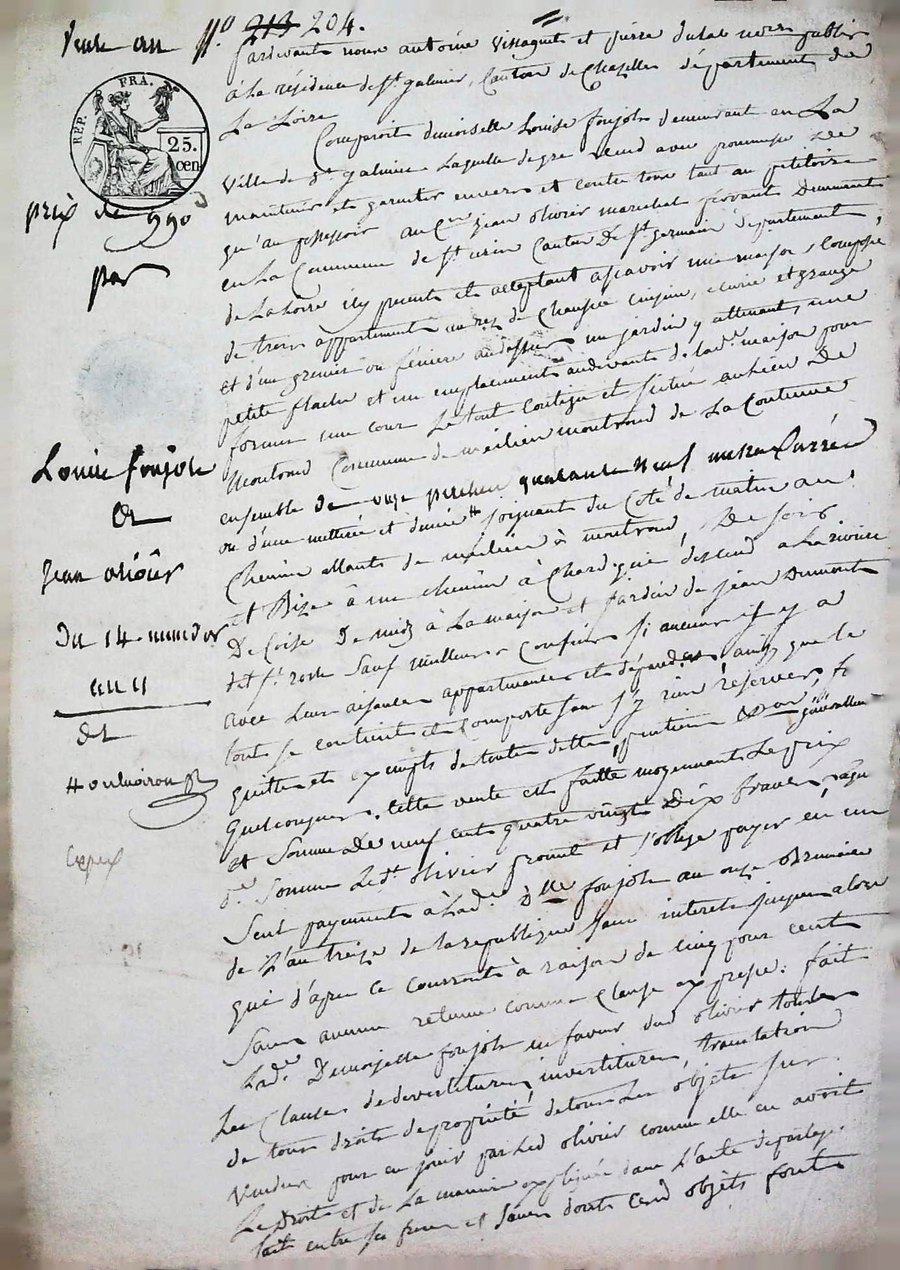 Vente au N.° 213 204.
Pardevant nous antoine Vissaguet et pierre dulac notaires publics
à La résidence de St galmier, Canton de Chazelles département de
La Loire
REP. FRA.
25. cen
Comparoit demoiselle Louise foujols demeurant en La
Ville de St galmier Laquelle de gré vend avec promesse de
maintenir et garantir envers et contre tous tant au petitoire
prix de 990
qu'au possessoir au Cen jean olivier marechal ferrant Demeurant
en La Commune de St Canton De St germain département
par
de La Loire icy present et acceptant ascavoir une maison, Composée
de trois appartements au rez de Chaussée Cuisine, écurie et grange
et d'un grenier ou fénière audessus un jardin y attenant, une
petite et un emplacement audevant de lade maison pour
former une cour Le tout Contigu et Situé au lieu De
Montrond Commune de meilieu montrond de La Contenue
Louise foujols
ensemble De onze perches quarante Neuf metres Carrés
et
ou d'une metterée et demie joignant du Coté de matin au
Jean olivier
Chemin allant de meilieu à montrond, De soir
et Bize à un chemin à Char qui descend a La riviere
Du 14
De Coise De midy à La maison et jardin de jean Dumont
dit St Sauf meilleurs Confins Si aucuns il y a
an 11
avec Leurs aisances appartenances et dépendances ainsy que le
et
tout se contient et Comporte sans s'y rien réserver,
quitte et exempts de toutes dettes,
generallement
Quelconques. Cette vente est faitte moyennant Le prix
et Somme De neuf cent quatre vingt Dix francs, laquelle
de Somme Ledt olivier promet et s'oblige payer en un
Seul payement à Lade Dlle foujols au onze
de L'an treize de la republique Sans interets jusques alors
qui d'apres ce Courront à raison de Cinq pour cent
Sans aucune retenue comme Clause expresse. fait
Lade Demoiselle foujols en faveur dud olivier toutes
Les Clauses de devestiture, investiture, translation
de tous droits de propriété de tous Les objets sus
Vendus pour en jouir par Led olivier comme elle en avoit
Le Droit et de La maniere expliquée dans L'acte de partage
fait entre ses freres et Sœurs dont Cesd objets font